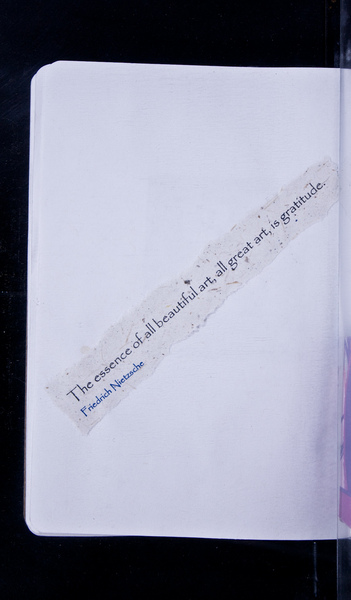 The essence of all beautiful art, all great art, is gratitude.
Friedrich Nietzsche